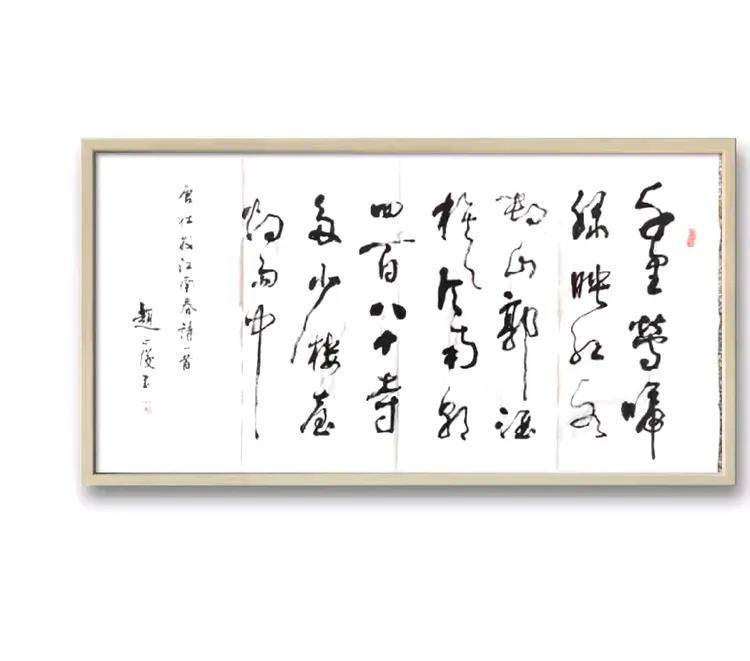 千里鶯啼
绿映红水
村山郭酒
旗风南朝
四百八十寺
多少楼台
烟雨中
唐杜牧江南春诗一首
趙